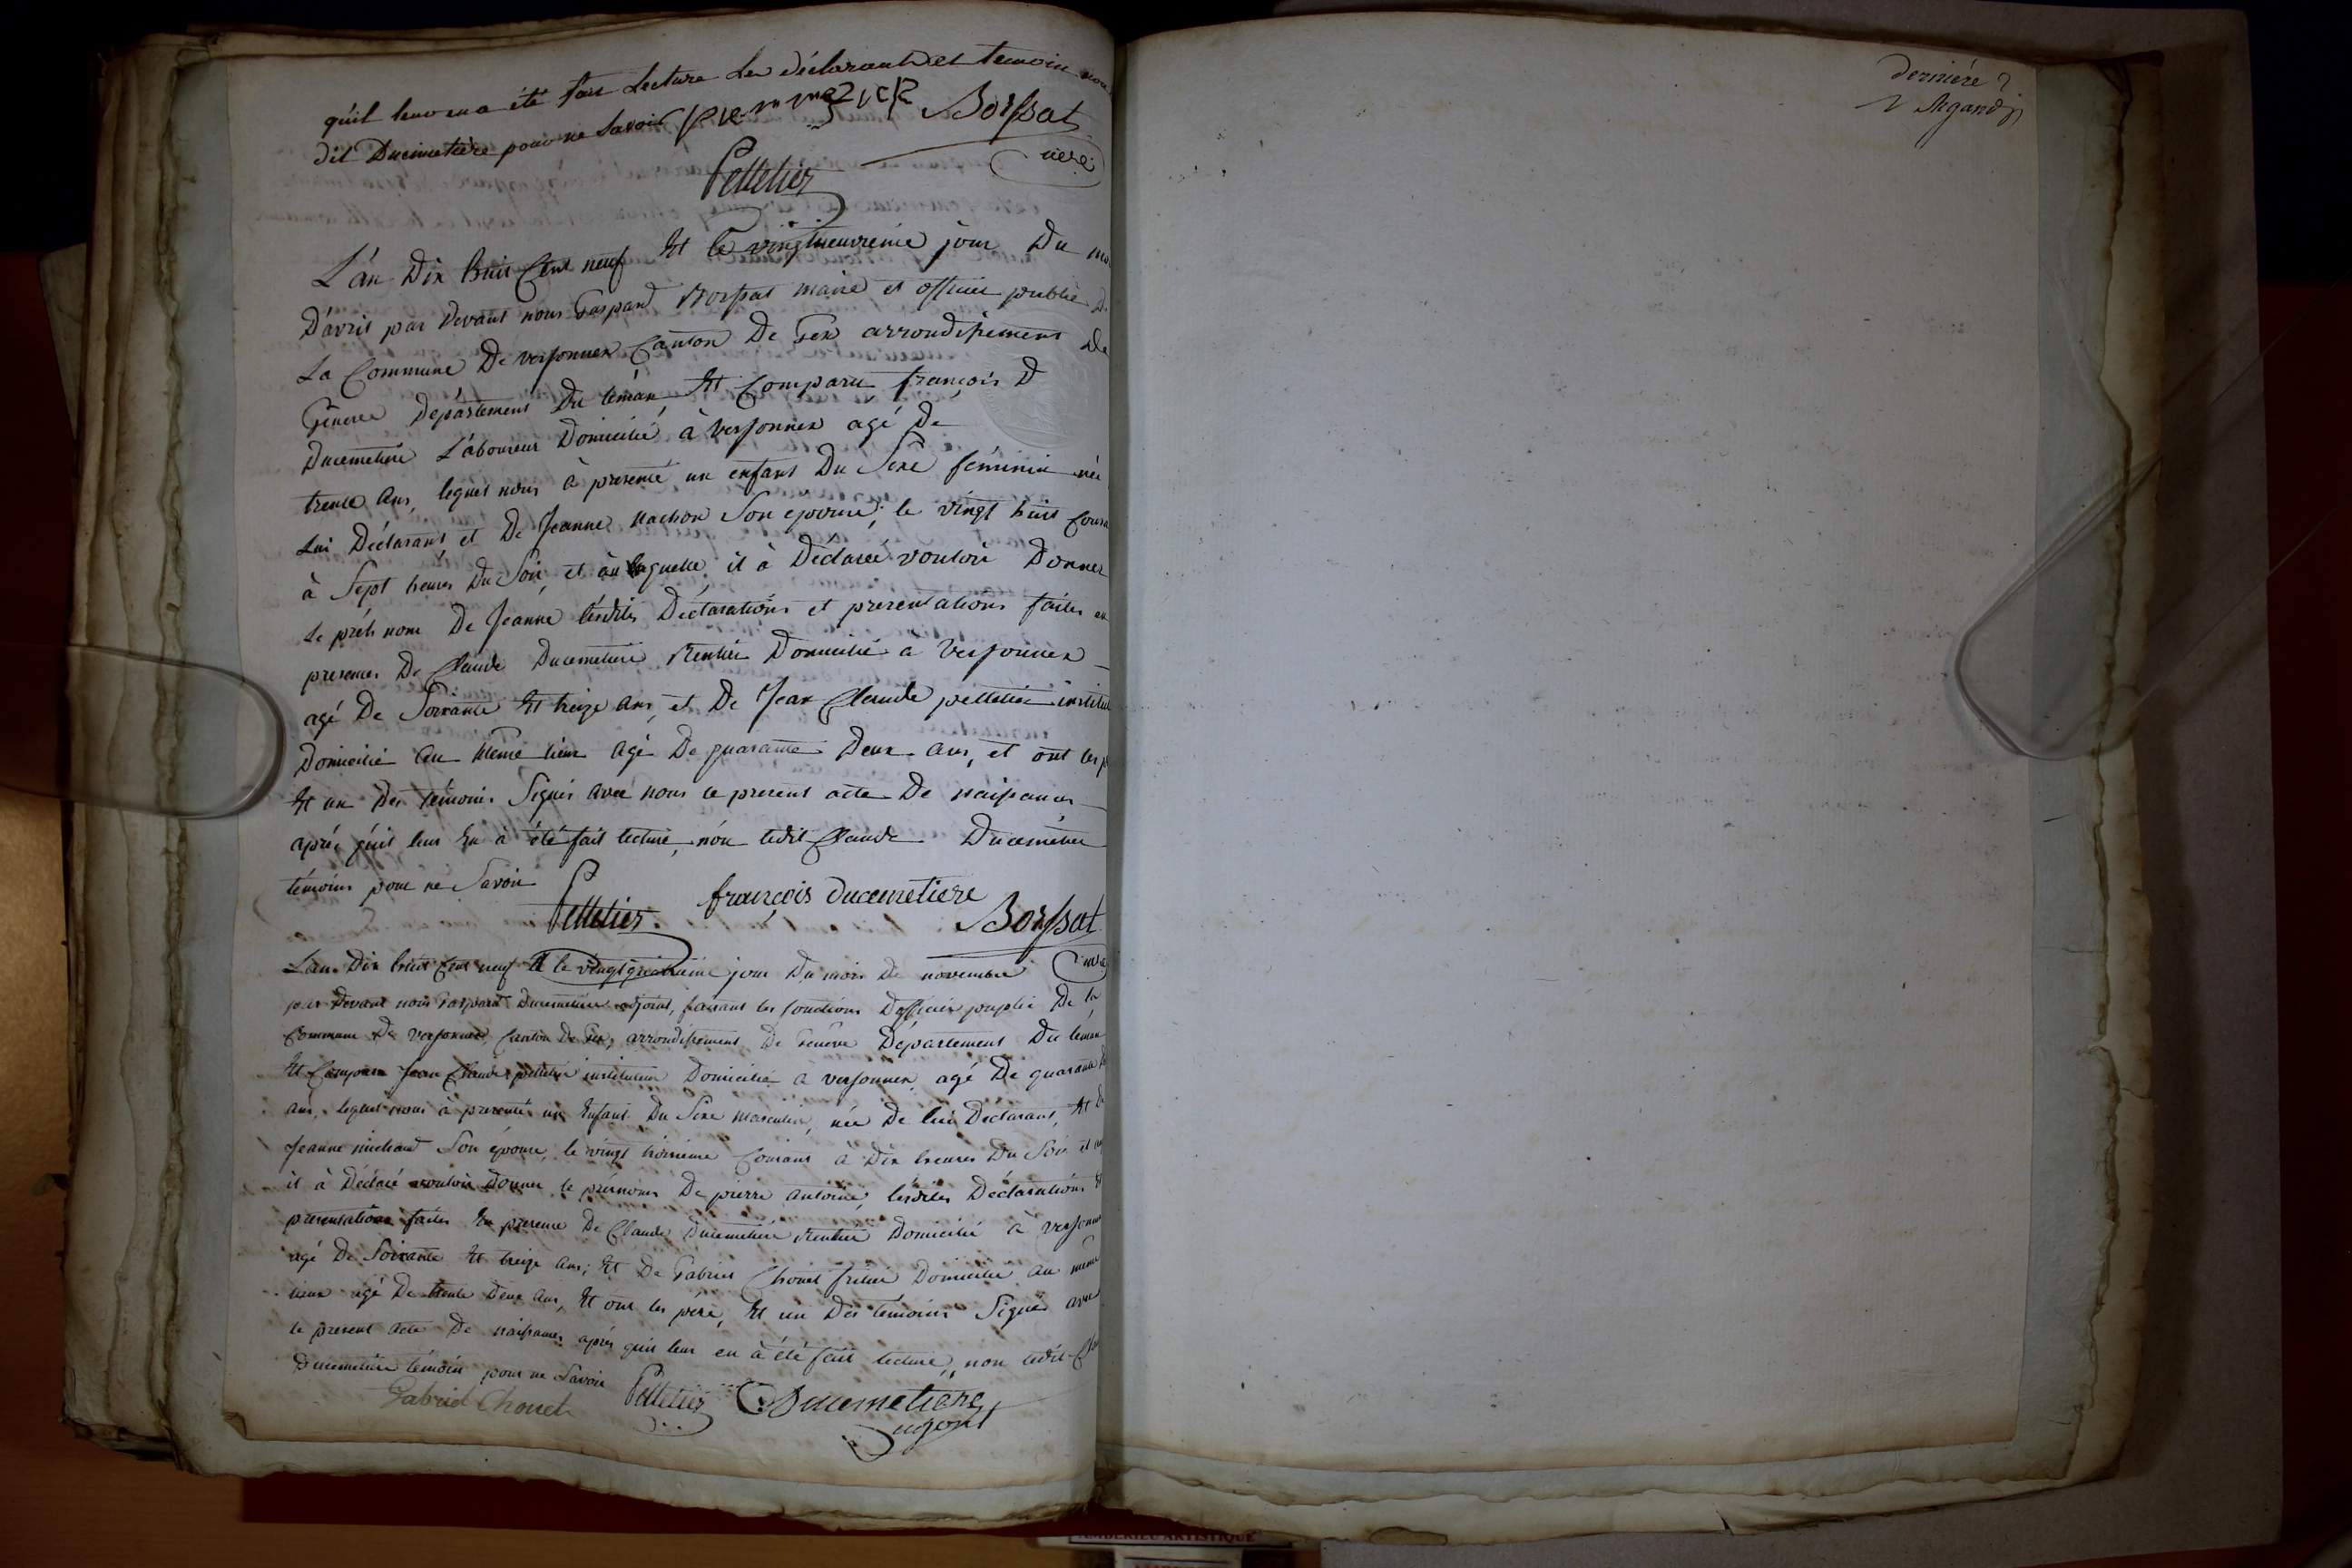 qu'il leur en a été fait Lecture Les déclarant et temoin non
dit Ducimetière pour ne Savoir Borssat
maire
Pelletier
L'an Dix huit Cent neuf Et le vingtneuvieme jour Du moi
D'avril par Devant nous Gaspard Borssat maire et officier public De
La Commune De versonnex Canton De Gex arrondissement De
Géneve Département Du léman Et Comparu françois D
Ducemetiere Laboureur Domicilié à Versonnex agé De
trente ans, lequel nous à presenté un enfant Du Sexe féminin née
Lui Déclarant et De Jeanne Nachon Son epouse, le vingt huit Coura
à Sept heures Du Soir, et au laquelle il à Déclaré vouloir Donner
Le prés nom De Jeanne lesdites Déclarations et presentations faites en
presences De Claude Ducemetiere Rentier Domicilié a Versonnex
agé De Soixante Et treize ans, et De Jean Claude pelletier institut
Domicilié au Même lieu agé De quarante Deux ans, et ont les p
Et un Des témoins Signés avec nous le present acte De naissances
aprés qu'il leur En à été fait lecture, non ledit Claude Ducemetier
témoins pour ne Savoir
Pelletier françois ducemetiere Borssat
maire
L'an Dix huit Cent neuf Et le vingtquatrieme jour Du mois De novembre
par Devant nous Gaspard Ducemetiere adjoint, faisant les fonctions D'officier puplic De la
Commune De versonnex, Canton De Gex, arrondissement De Genève Département Du léman
Et Comparu Jean Claude pelletier instituteur Domicilié a versonnex agé De quarante De
ans, lequel nous à presenté un Enfant Du Sexe masculin, née De lui Déclarant, Et De
Jeanne michaud Son épouse, le vingt troisieme Courant à Dix heures Du Soir et au
il à Déclaré vouloir Donner le prénoms De pierre antoine, lesdites Déclarations Et
presentations faites En presence De Claude Ducemetiere Rentier Domicilié à versonne
agé De Soixante Et treize ans; Et De Gabriel Chouet Domicilié au même
lieux agé De trente Deux ans, Et ont les pére, Et un Des temoins Signés avec
le present acte De naissances aprés qu'il leur en à été fait lecture, non ledit Cla
Ducemetiere témoin pour ne Savoir
Gabriel Chouet Pelletier Ducemetiere
adjoint
derniére